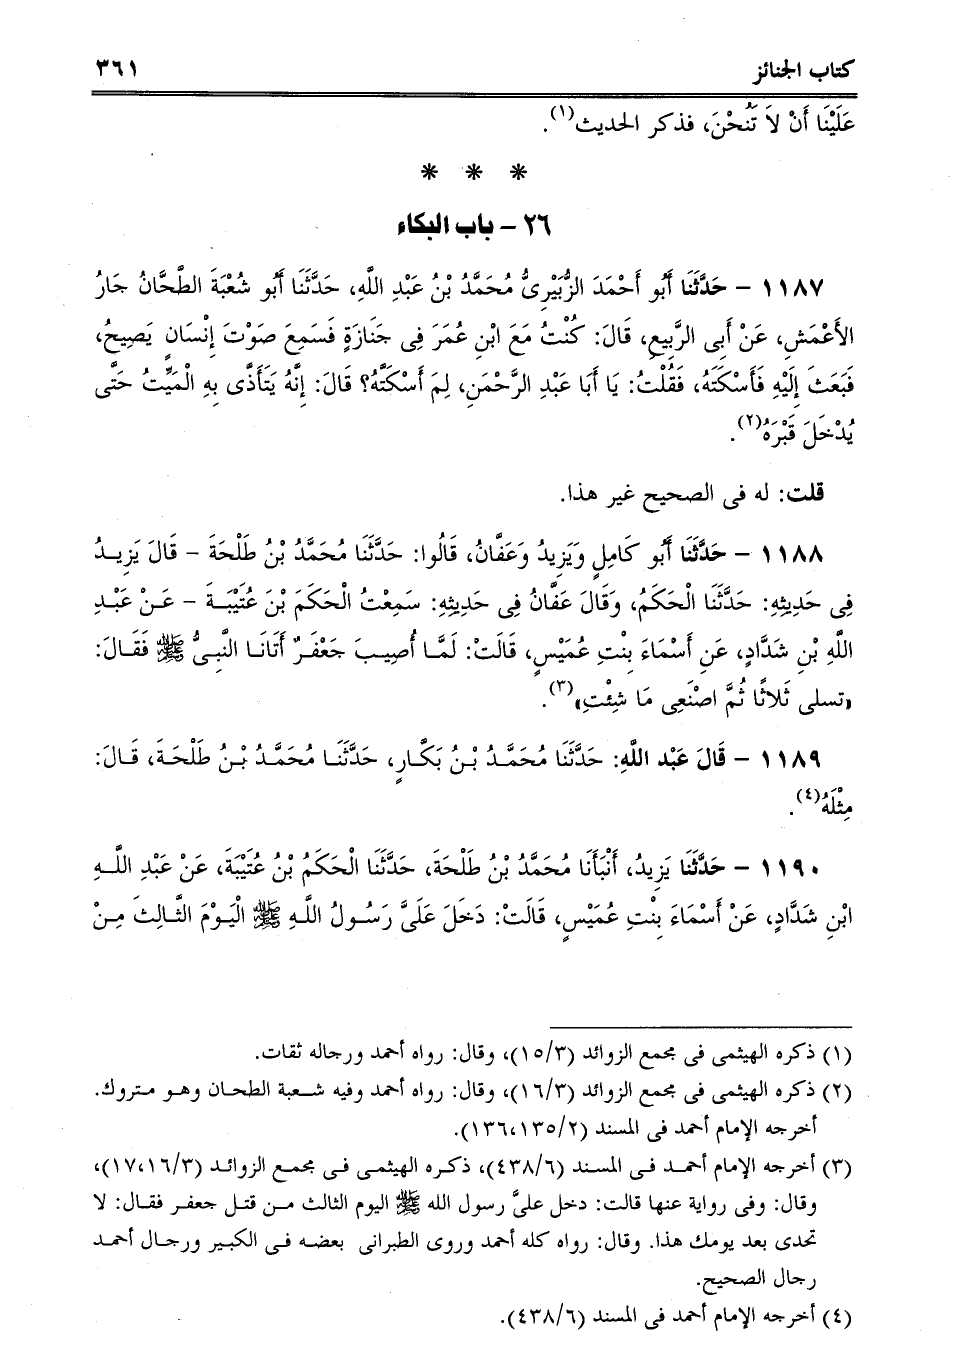 كتاب الجنائز
٣٦١
عَلَيْنَا أَنْ لاَ نَنُحْنَ، فذكر الحديث(١).
* * *
٢٦ – باب البكاء
١١٨٧ – حَدَّثَنَا أَبُو أَحْمَدَ الزُّبَيْرِىُّ مُحَمَّدُ بْنُ عَبْدِ اللَّهِ، حَدَّثَنَا أَبُو شُعْبَةَ الطَّحَّانُ جَارُ
الأَعْمَشِ، عَنْ أَبِى الرَّبِيعِ، قَالَ: كُنْتُ مَعَ ابْنِ عُمَرَ فِى جَنَازَةٍ فَسَمِعَ صَوْتَ إِنْسَانٍ يَصِيحُ،
فَبَعَثَ إِلَيْهِ فَأَسْكَتَهُ، فَقُلْتُ: يَا أَبَا عَبْدِ الرَّحْمَنِ، لِمَ أَسْكَتَّهُ؟ قَالَ: إِنَّهُ يَتَأَذَّى بِهِ الْمَيِّتُ حَتَّى
يُدْخَلَ قَبْرَهُ(٢).
قلت: له فى الصحيح غير هذا.
١١٨٨ – حَدَّثَنَا أَبُو كَامِلٍ وَيَزِيدُ وَعَفَّانُ، قَالُوا: حَدَّثَنَا مُحَمَّدُ بْنُ طَلْحَةَ – قَالَ يَزِيدُ
فِى حَدِيثِهِ: حَدَّثَنَا الْحَكَمُ، وَقَالَ عَفَّانُ فِى حَدِيثِهِ: سَمِعْتُ الْحَكَمَ بْنَ عُتَيْبَةَ – عَنْ عَبْدِ
اللَّهِ بْنِ شَدَّادٍ، عَنِ أَسْمَاءَ بِنْتِ عُمَيْسٍ، قَالَتْ: لَمَّا أُصِيبَ جَعْفَرٌ أَتَانَا النَّبِىُّ ﷺ فَقَالَ:
«تسلى ثَلاَثًا ثُمَّ اصْنَعِى مَا شِئْتِ»(٣).
١١٨٩ – قَالَ عَبْد اللَّهِ: حَدَّثَنَا مُحَمَّدُ بْنُ بَكَّارٍ، حَدَّثَنَا مُحَمَّدُ بْنُ طَلْحَةَ، قَالَ:
مِثْلَهُ(٤).
١١٩٠ – حَدَّثَنَا يَزِيدُ، أَنْبَأَنَا مُحَمَّدُ بْنُ طَلْحَةَ، حَدَّثَنَا الْحَكَمُ بْنُ عُتَيْبَةَ، عَنْ عَبْدِ اللَّهِ
ابْنِ شَدَّادٍ، عَنْ أَسْمَاءَ بِنْتِ عُمَيْسٍ، قَالَتْ: دَخَلَ عَلَىَّ رَسُولُ اللَّهِ ﷺ الْيَوْمَ الثَّالِثَ مِنْ
(١) ذكره الهيثمى فى مجمع الزوائد (١٥/٣)، وقال: رواه أحمد ورجاله ثقات.
(٢) ذكره الهيثمى فى مجمع الزوائد (١٦/٣)، وقال: رواه أحمد وفيه شعبة الطحان وهو متروك.
أخرجه الإمام أحمد فى المسند (١٣٦،١٣٥/٢).
(٣) أخرجه الإمام أحمد فى المسند (٤٣٨/٦)، ذكره الهيثمى فى مجمع الزوائد (١٧،١٦/٣)،
وقال: وفى رواية عنها قالت: دخل علىَّ رسول الله ﷺ اليوم الثالث من قتل جعفر فقال: لا
تحدى بعد يومك هذا. وقال: رواه كله أحمد وروى الطبرانى بعضه فى الكبير ورجال أحمد
رجال الصحيح.
(٤) أخرجه الإمام أحمد فى المسند (٤٣٨/٦).